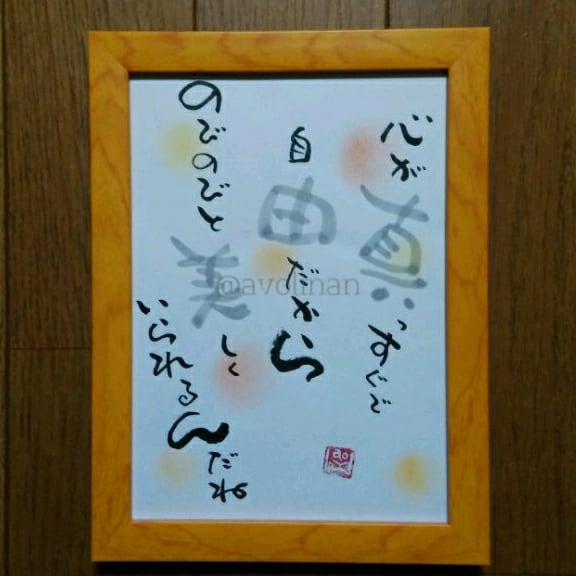 心が真っすぐで
自由だから
のびのびと美しく
いられるんだね
@avolinan